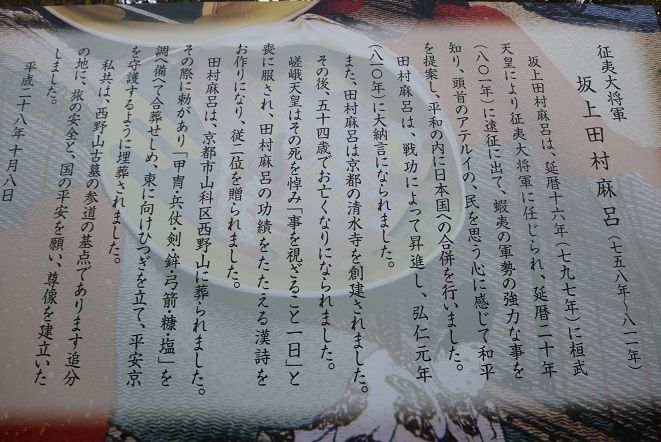 征夷大将軍
坂上田村麻呂（七五八年~八一一年）
坂上田村麻呂は、延暦十六年（七九七年）に桓武
天皇により征夷大将軍に任じられ、延暦二十年
（八〇一年）に遠征に出て、蝦夷の軍勢の強力な事を
知り、頭首のアテルイの、民を思う心に感じて和平
を提案し、平和の内に日本国への合併を行いました。
田村麻呂は、戦功によって昇進し、弘仁元年
（八一〇年）に大納言になられました。
また、田村麻呂は京都の清水寺を創建されました。
その後、五十四歳でお亡くなりになられました。
嵯峨天皇はその死を悼み「事を視ざること一日」と
喪に服され、田村麻呂の功績をたたえる漢詩を
お作りになり、従二位を贈られました。
田村麻呂は、京都市山科区西野山に葬られました。
その際に勅があり「甲冑・兵仗・剣・鉾・弓箭・糠・塩」を
調へ備へて合葬せしめ、東に向けひつぎを立て、平安京
を守護するように埋葬されました。
私共は、西野山古墓の参道の基点であります追分
の地に、旅の安全と、国の平安を願い、尊像を建立いた
しました。
平成二十八年十月八日